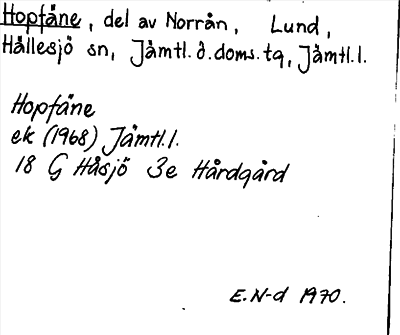 Hopfåne, del av Norrån, Lund,
Hållesjö sn, Jämtl. ö. doms. tg, Jämtl. l.
Hopfåne
ek (1968) Jämtl. l.
18 G Håsjö 3e Hårdgård
E. N-d 1970.